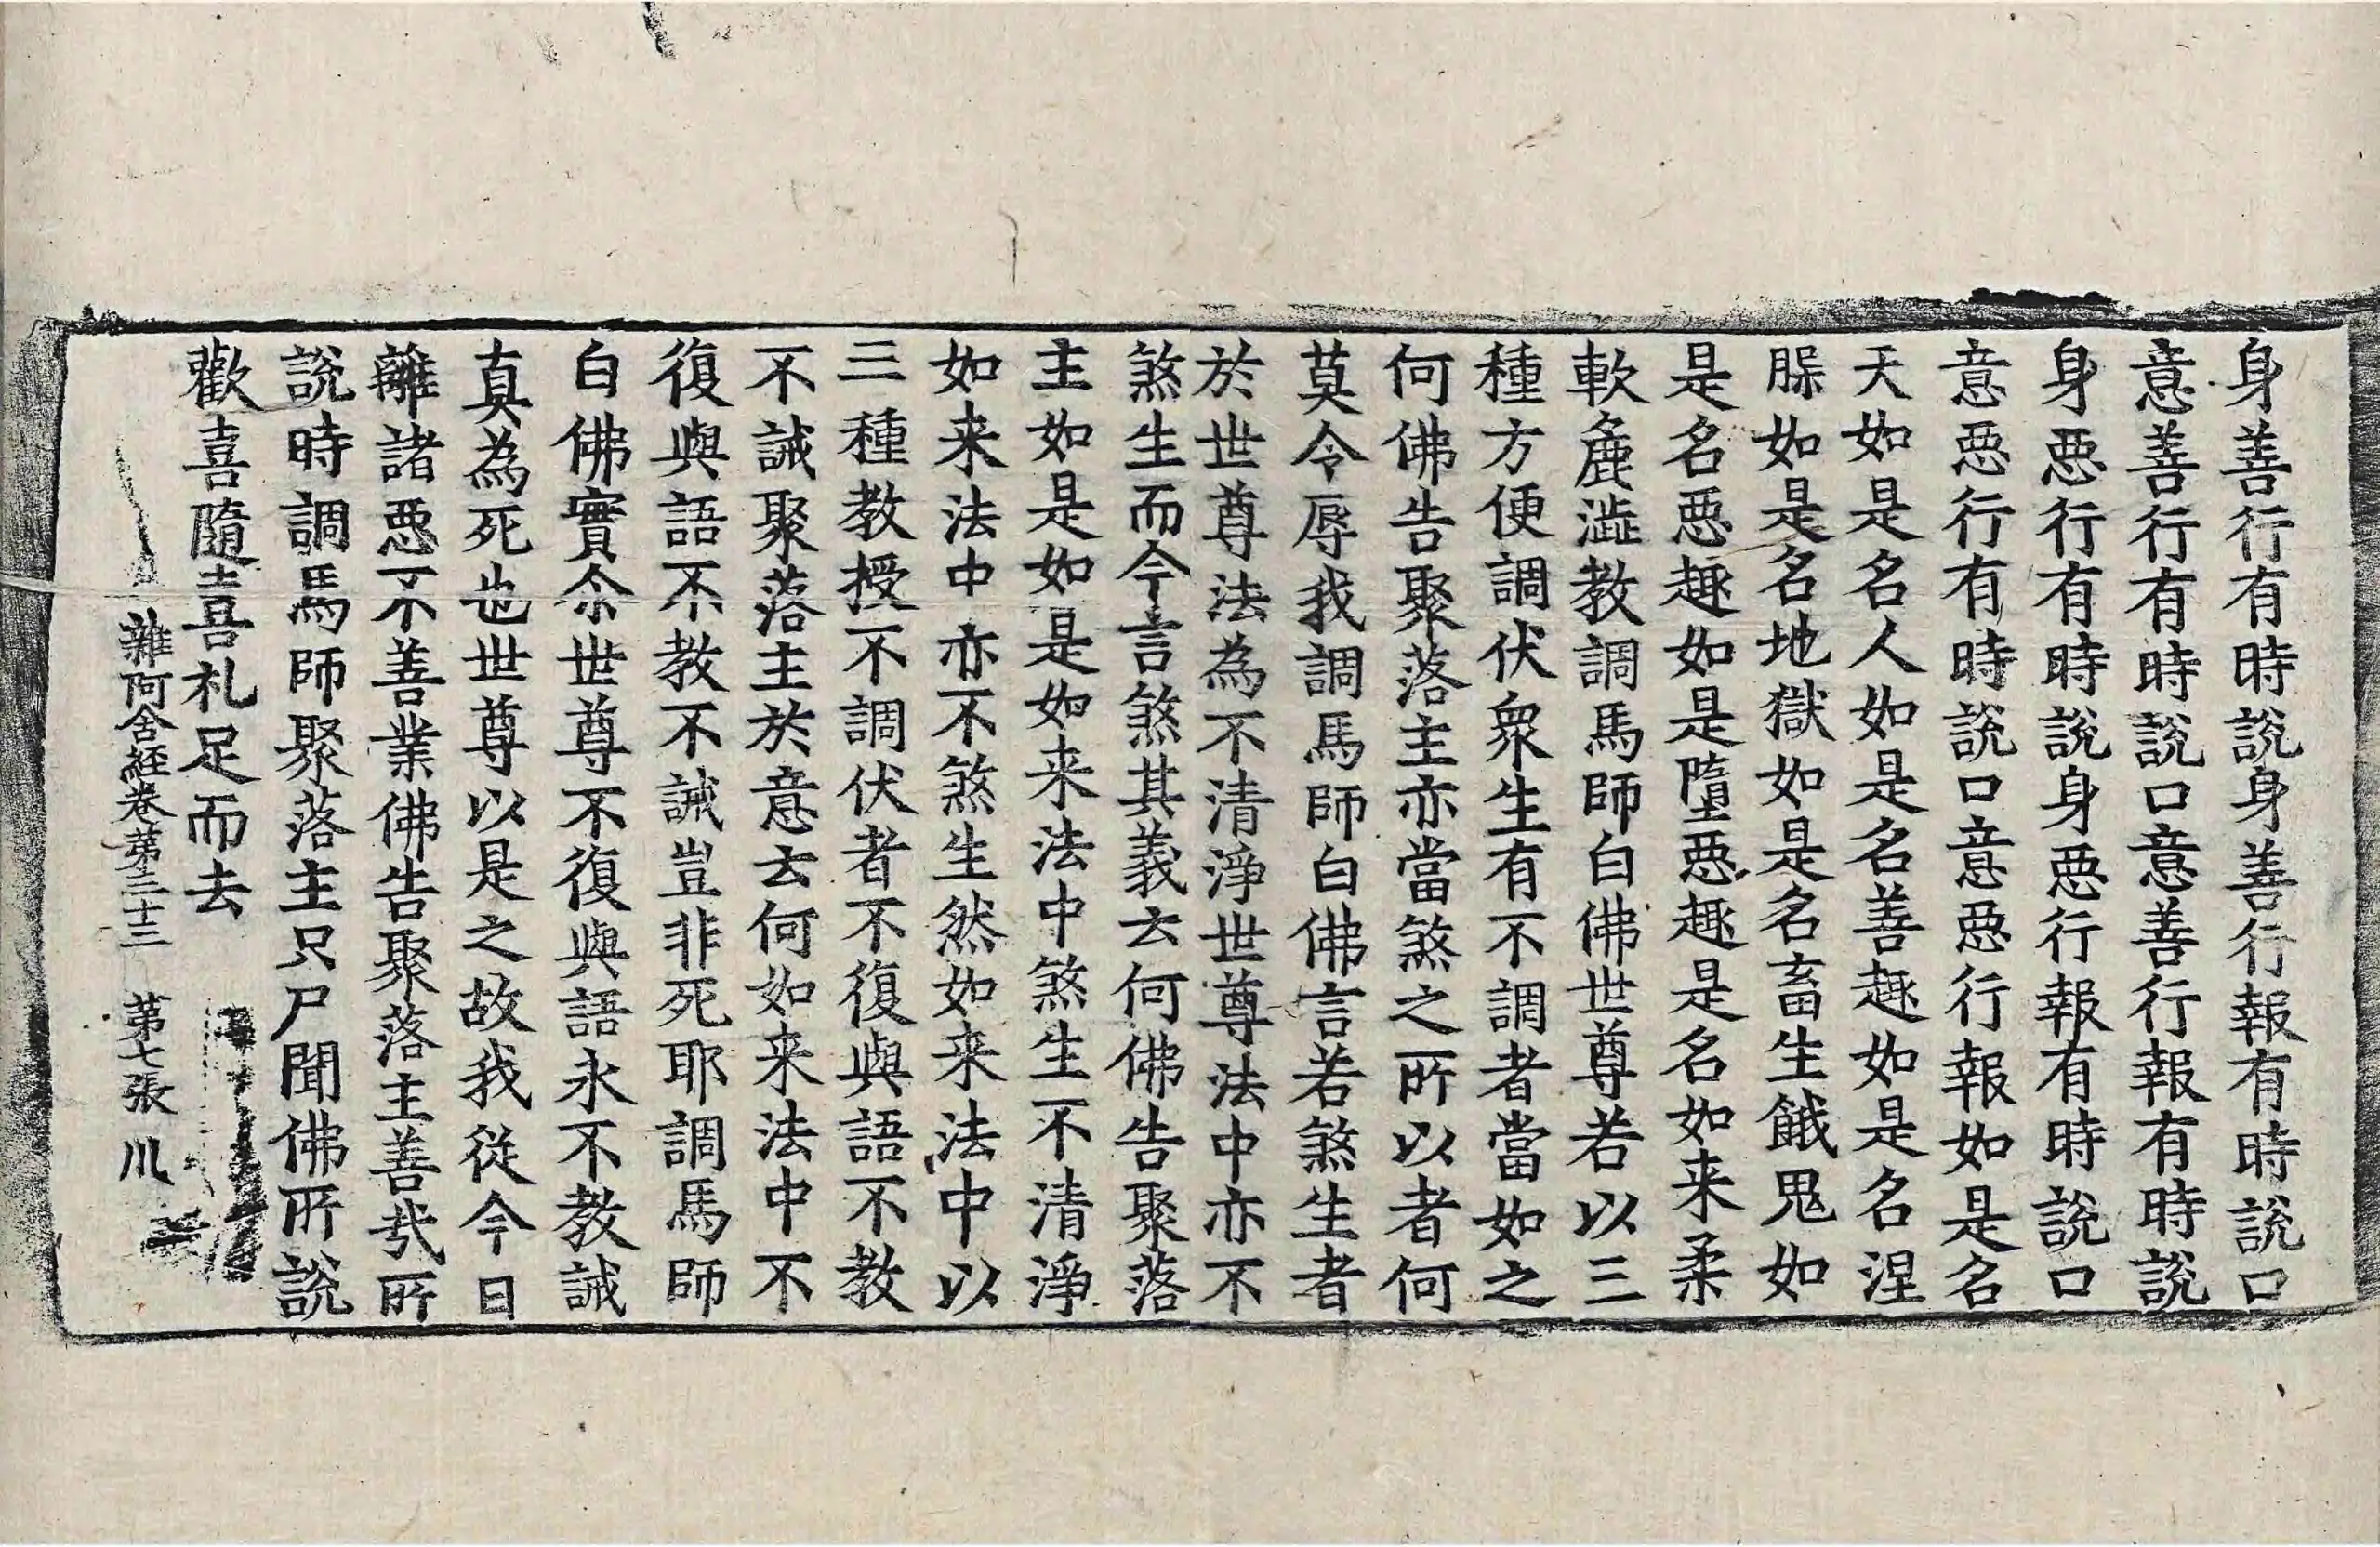 身善行有時說身善行報有時說口
意善行有時說口意善行報有時說
身惡行有時說身惡行報有時說口
意惡行有時說口意惡行報如是名
天如是名人如是名善趣如是名涅
𦙁如是名地獄如是名畜生餓鬼如
是名惡趣如是墮惡趣是名如来柔
軟麁澁教調馬師白佛世尊若以三
種方便調伏衆生有不調者當如之
何佛告聚落主亦當煞之所以者何
莫令辱我調馬師白佛言若煞生者
於世尊法為不清淨世尊法中亦不
煞生而今言煞其義云何佛告聚落
主如是如是如来法中煞生不清淨
如来法中亦不煞生然如来法中以
三種教授不調伏者不復與語不教
不誡聚落主於意云何如来法中不
復與語不教不誡豈非死耶調馬師
白佛實尒世尊不復與語永不教誡
真為死也世尊以是之故我從今日
離諸惡不善業佛告聚落主善㢤所
說時調馬師聚落主只尸聞佛所說
歡喜隨喜礼足而去
雜阿含經卷第三十三 第七張 川